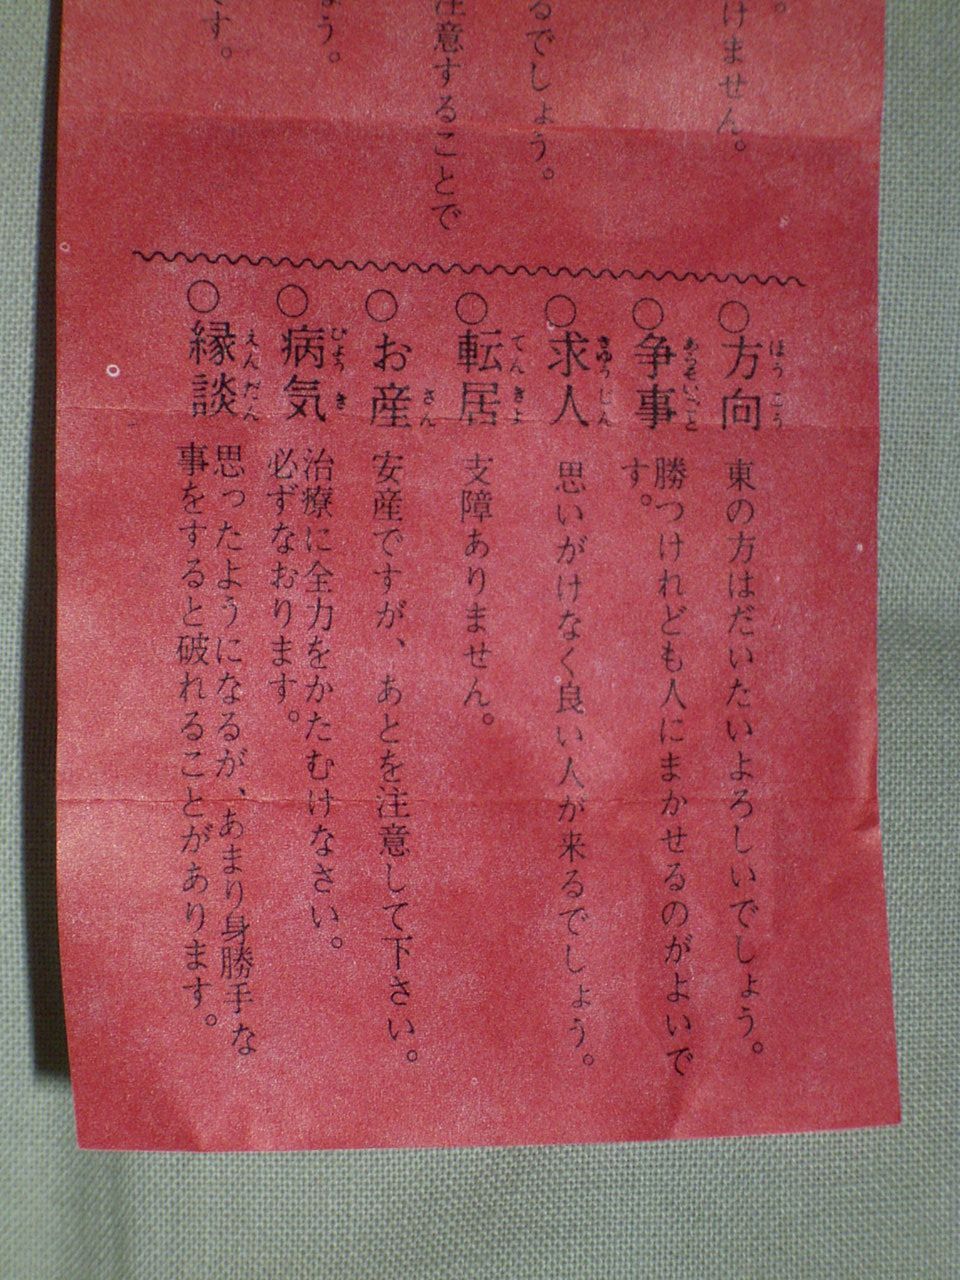 けません。
るでしょう。
注意することで
う。
す。
○方向 ほうこう
東の方はだいたいよろしいでしょう。
○争事 あらそいごと
勝つけれども人にまかせるのがよいで
す。
○求人 きゅうじん
思いがけなく良い人が来るでしょう。
○転居 てんきょ
支障ありません。
○お産 さん
安産ですが、あとを注意して下さい。
○病気 びょうき
治療に全力をかたむけなさい。
必ずなおります。
○縁談 えんだん
思ったようになるが、あまり身勝手な
事をすると破れることがあります。